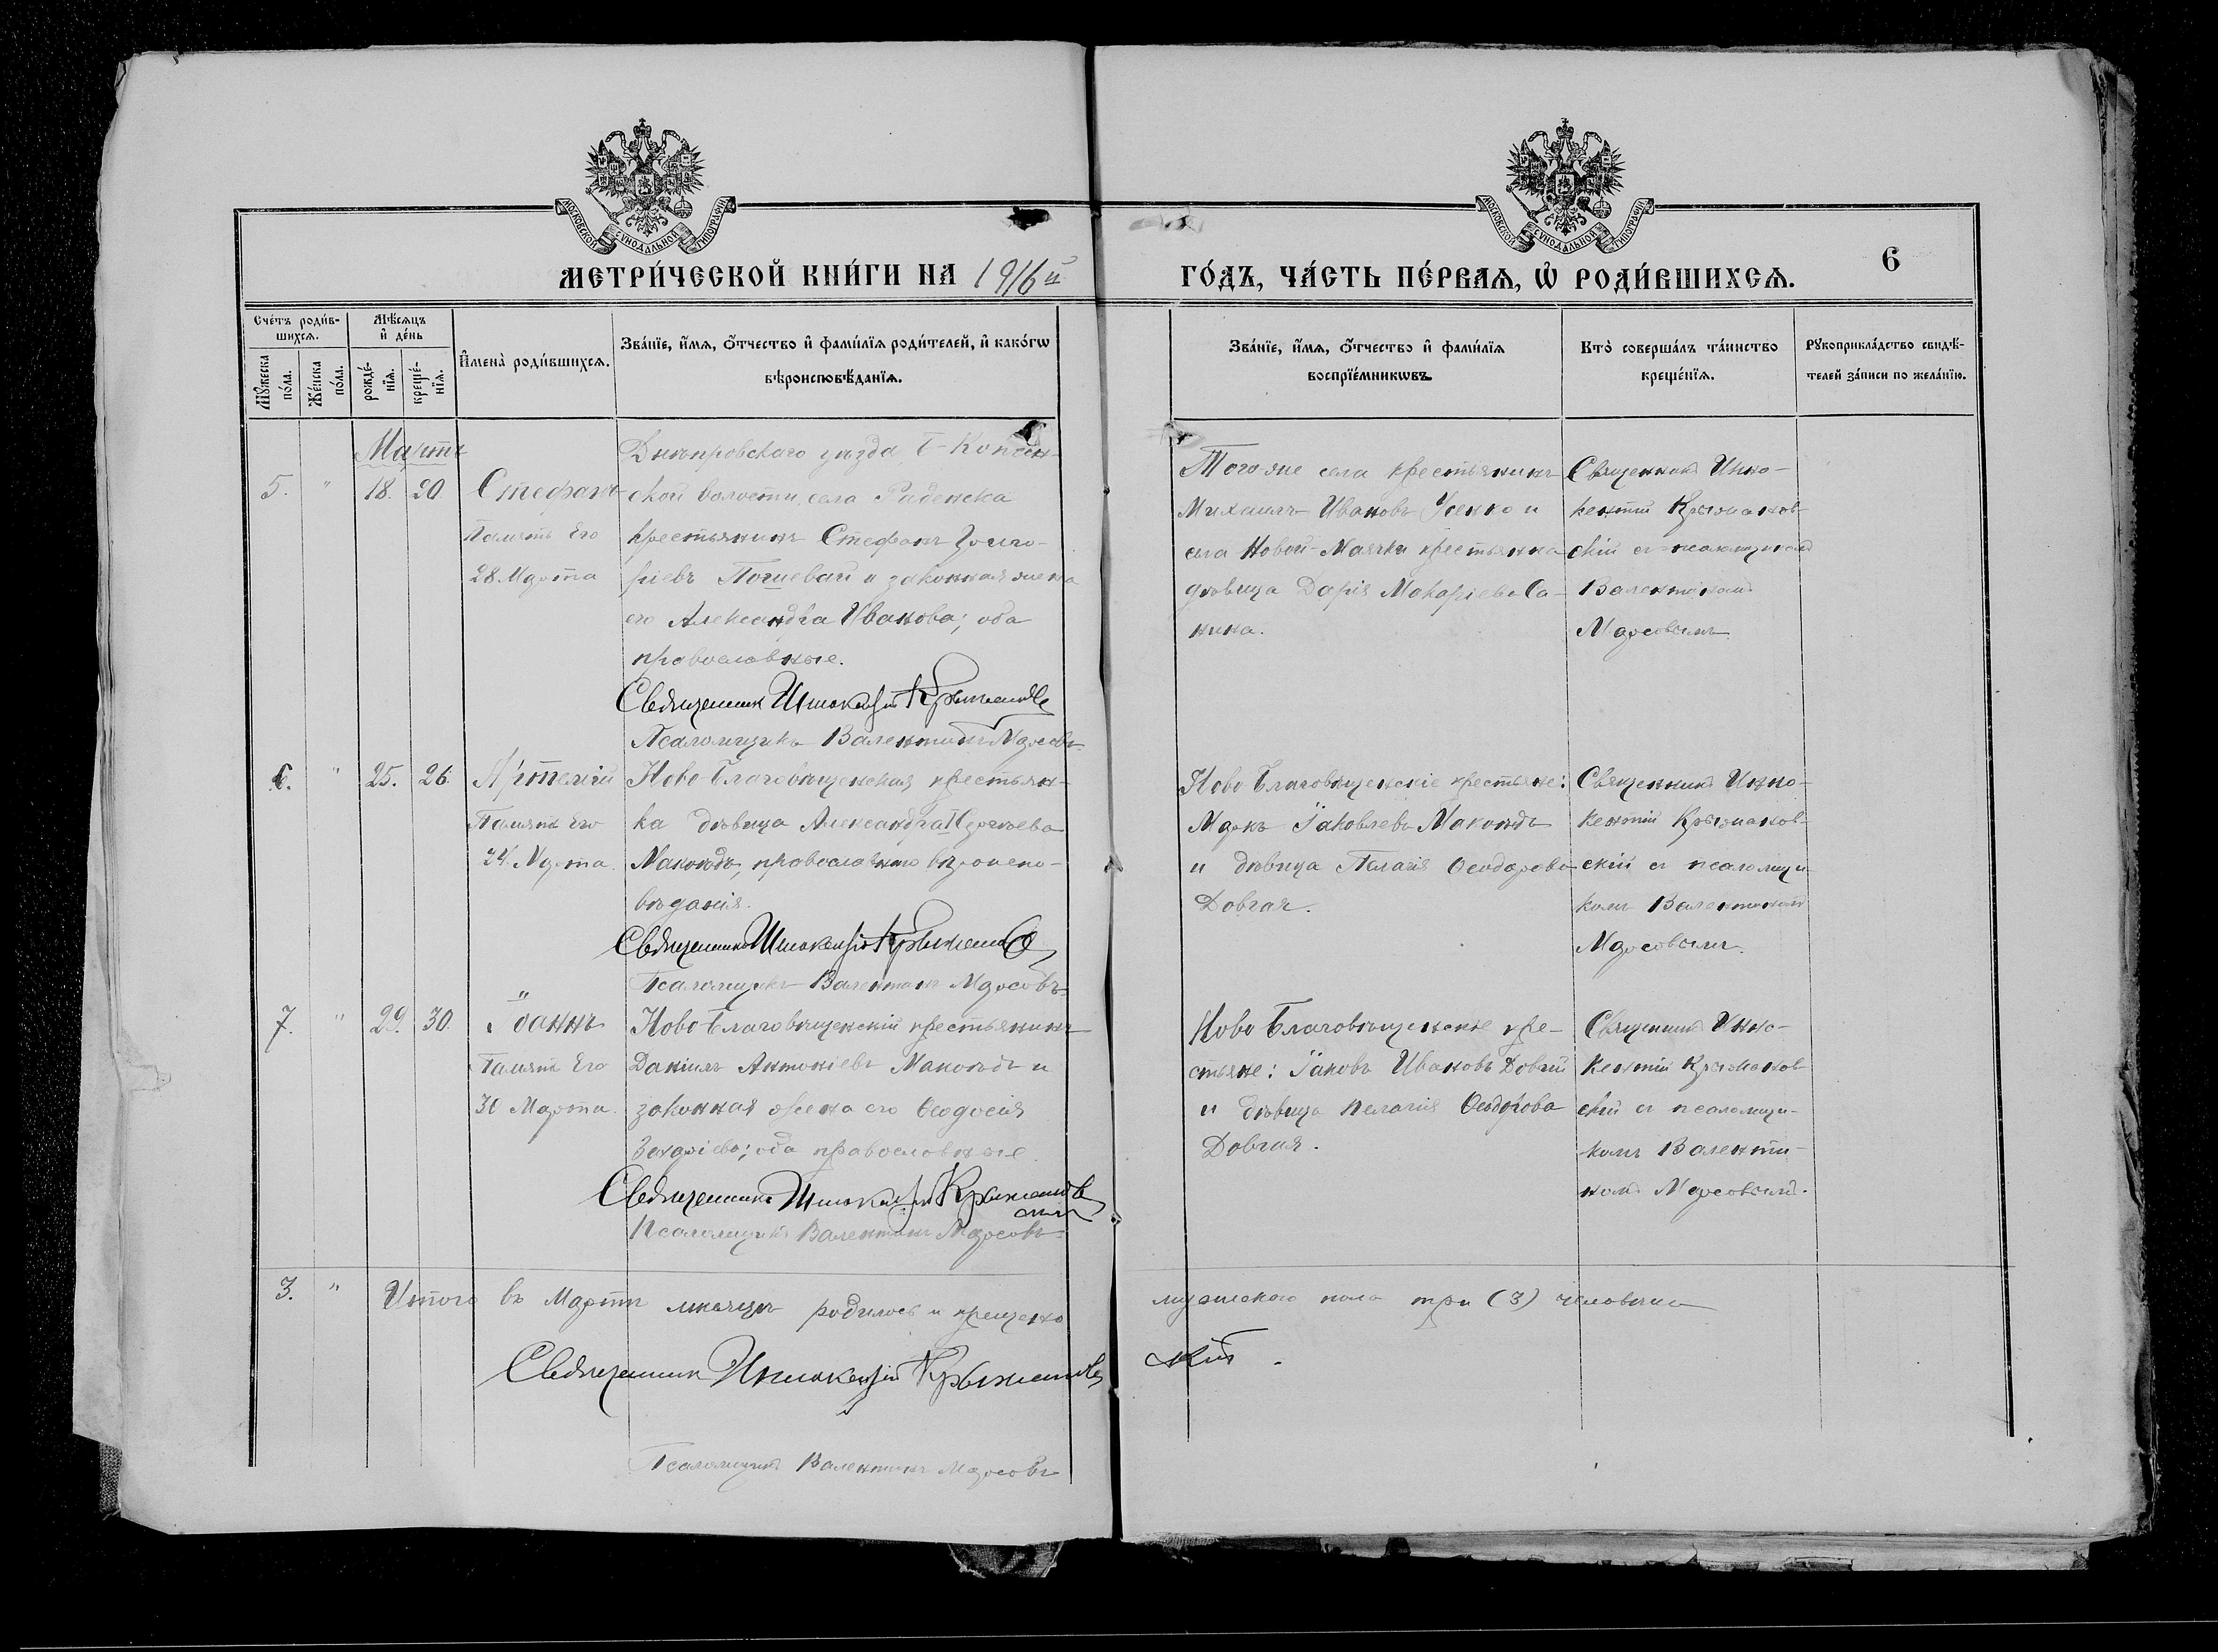 МОСКОВСКОЙ СѴНОДАЛЬНОЙ ТИПОГРАФІИ
МОСКОВСКОЙ СѴНОДАЛЬНОЙ ТИПОГРАФІИ
МЕТРИ́ЧЕСКОЙ КНИ́ГИ НА 1916й
ГО́ДЪ, ЧА́СТЬ ПЕ́РВАѦ, Ѡ҆ РОДИ́ВШИХСѦ.
6
Сче́тъ роди́в-
шихсѧ.
Мꙋ́жеска
по́ла.
Же́нска
по́ла.
Мѣ́сѧцъ
и҆ де́нь
рожде́-
нїѧ.
креще́-
нїѧ.
И҆мена̀ роди́вшихсѧ.
Зва́нїе, и҆́мѧ, ѻ҆́тчество и҆ фами́лїѧ роди́телей, и҆ како́гѡ
вѣроисповѣ́данїѧ.
Зва́нїе, и҆́мѧ, ѻ҆́тчество и҆ фами́лїѧ
воспрїе́мникѡвъ.
Кто̀ соверша́лъ та́инство
креще́нїѧ.
Рꙋкоприкла́дство свидѣ́-
телей за́писи по жела́нїю.
Мартъ
5. " 18. 20. Стефанъ
Память Его
28 Марта
Днѣпровскаго уѣзда,
ской волости, села Раденска
крестьянинъ Стефанъ Григо-
ріевъ и законная жена
его Александра Иванова; оба
православные.
Священник Иннокентій
Псаломщикъ Валентинъ
Того-же села крестьянинъ
Михаилъ Ивановъ Усенко и
села Новой-Маячки крестьянка
дѣвица Дарія Макаріева Са-
нина.
Священникъ Инно-
кентій Крыжанов-
скій съ псаломщикомъ
Валентиномъ
6. " 25. 26. Артемій
Память Его
24 Марта.
Ново-Благовѣщенская крестьян-
ка дѣвица Александра
православнаго вѣроиспо-
вѣданія.
Священникъ Иннокентій
Псаломщикъ Валентинъ
Ново-Благовѣщенскіе крестьяне:
Маркъ Іаковлевъ
и дѣвица Пелагія Ѳеодорова
Довгая.
Священникъ Инно-
кентій Крыжанов-
скій съ псаломщи-
комъ Валентиномъ
7. " 29. 30. Іоаннъ
Память Его
30 Марта.
Ново-Благовѣщенскій крестьянинъ
Даніилъ Антоніевъ и
законная жена его Ѳеодосія
Захаріева; оба православные.
Священникъ Иннокентій Крыжановскій
Псаломщикъ Валентинъ
Ново Благовѣщенскіе кре-
стьяне: Іаковъ Ивановъ Довгий
и дѣвица Пелагія Ѳеодорова
Довгая.
Священникъ Инно-
кентій Крыжанов-
скій съ псаломщи-
комъ Валенти-
номъ
3. " Итого въ Мартѣ мѣсяцѣ родилось и крещено мужескаго пола три (3) человѣка
Священник Иннокентій Крыжановскій.
Псаломщикъ Валентинъ